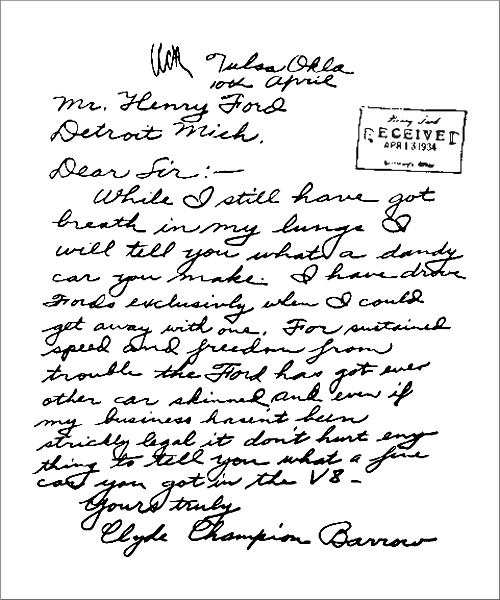 Tulsa Okla
10th April
Mr. Henry Ford
Detroit Mich.
Henry Ford
RECEIVED
APR 13 1934
Dear Sir:—
While I still have got
breath in my lungs I
will tell you what a dandy
car you make. I have drove
Fords exclusivly when I could
get away with one. For sustained
speed and freedom from
trouble the Ford has got ever
other car skinned, and even if
my business hasen't been
strickly legal it don't hurt eny
thing to tell you what a fine
car you got in the V8 –
Yours truly
Clyde Champion Barrow